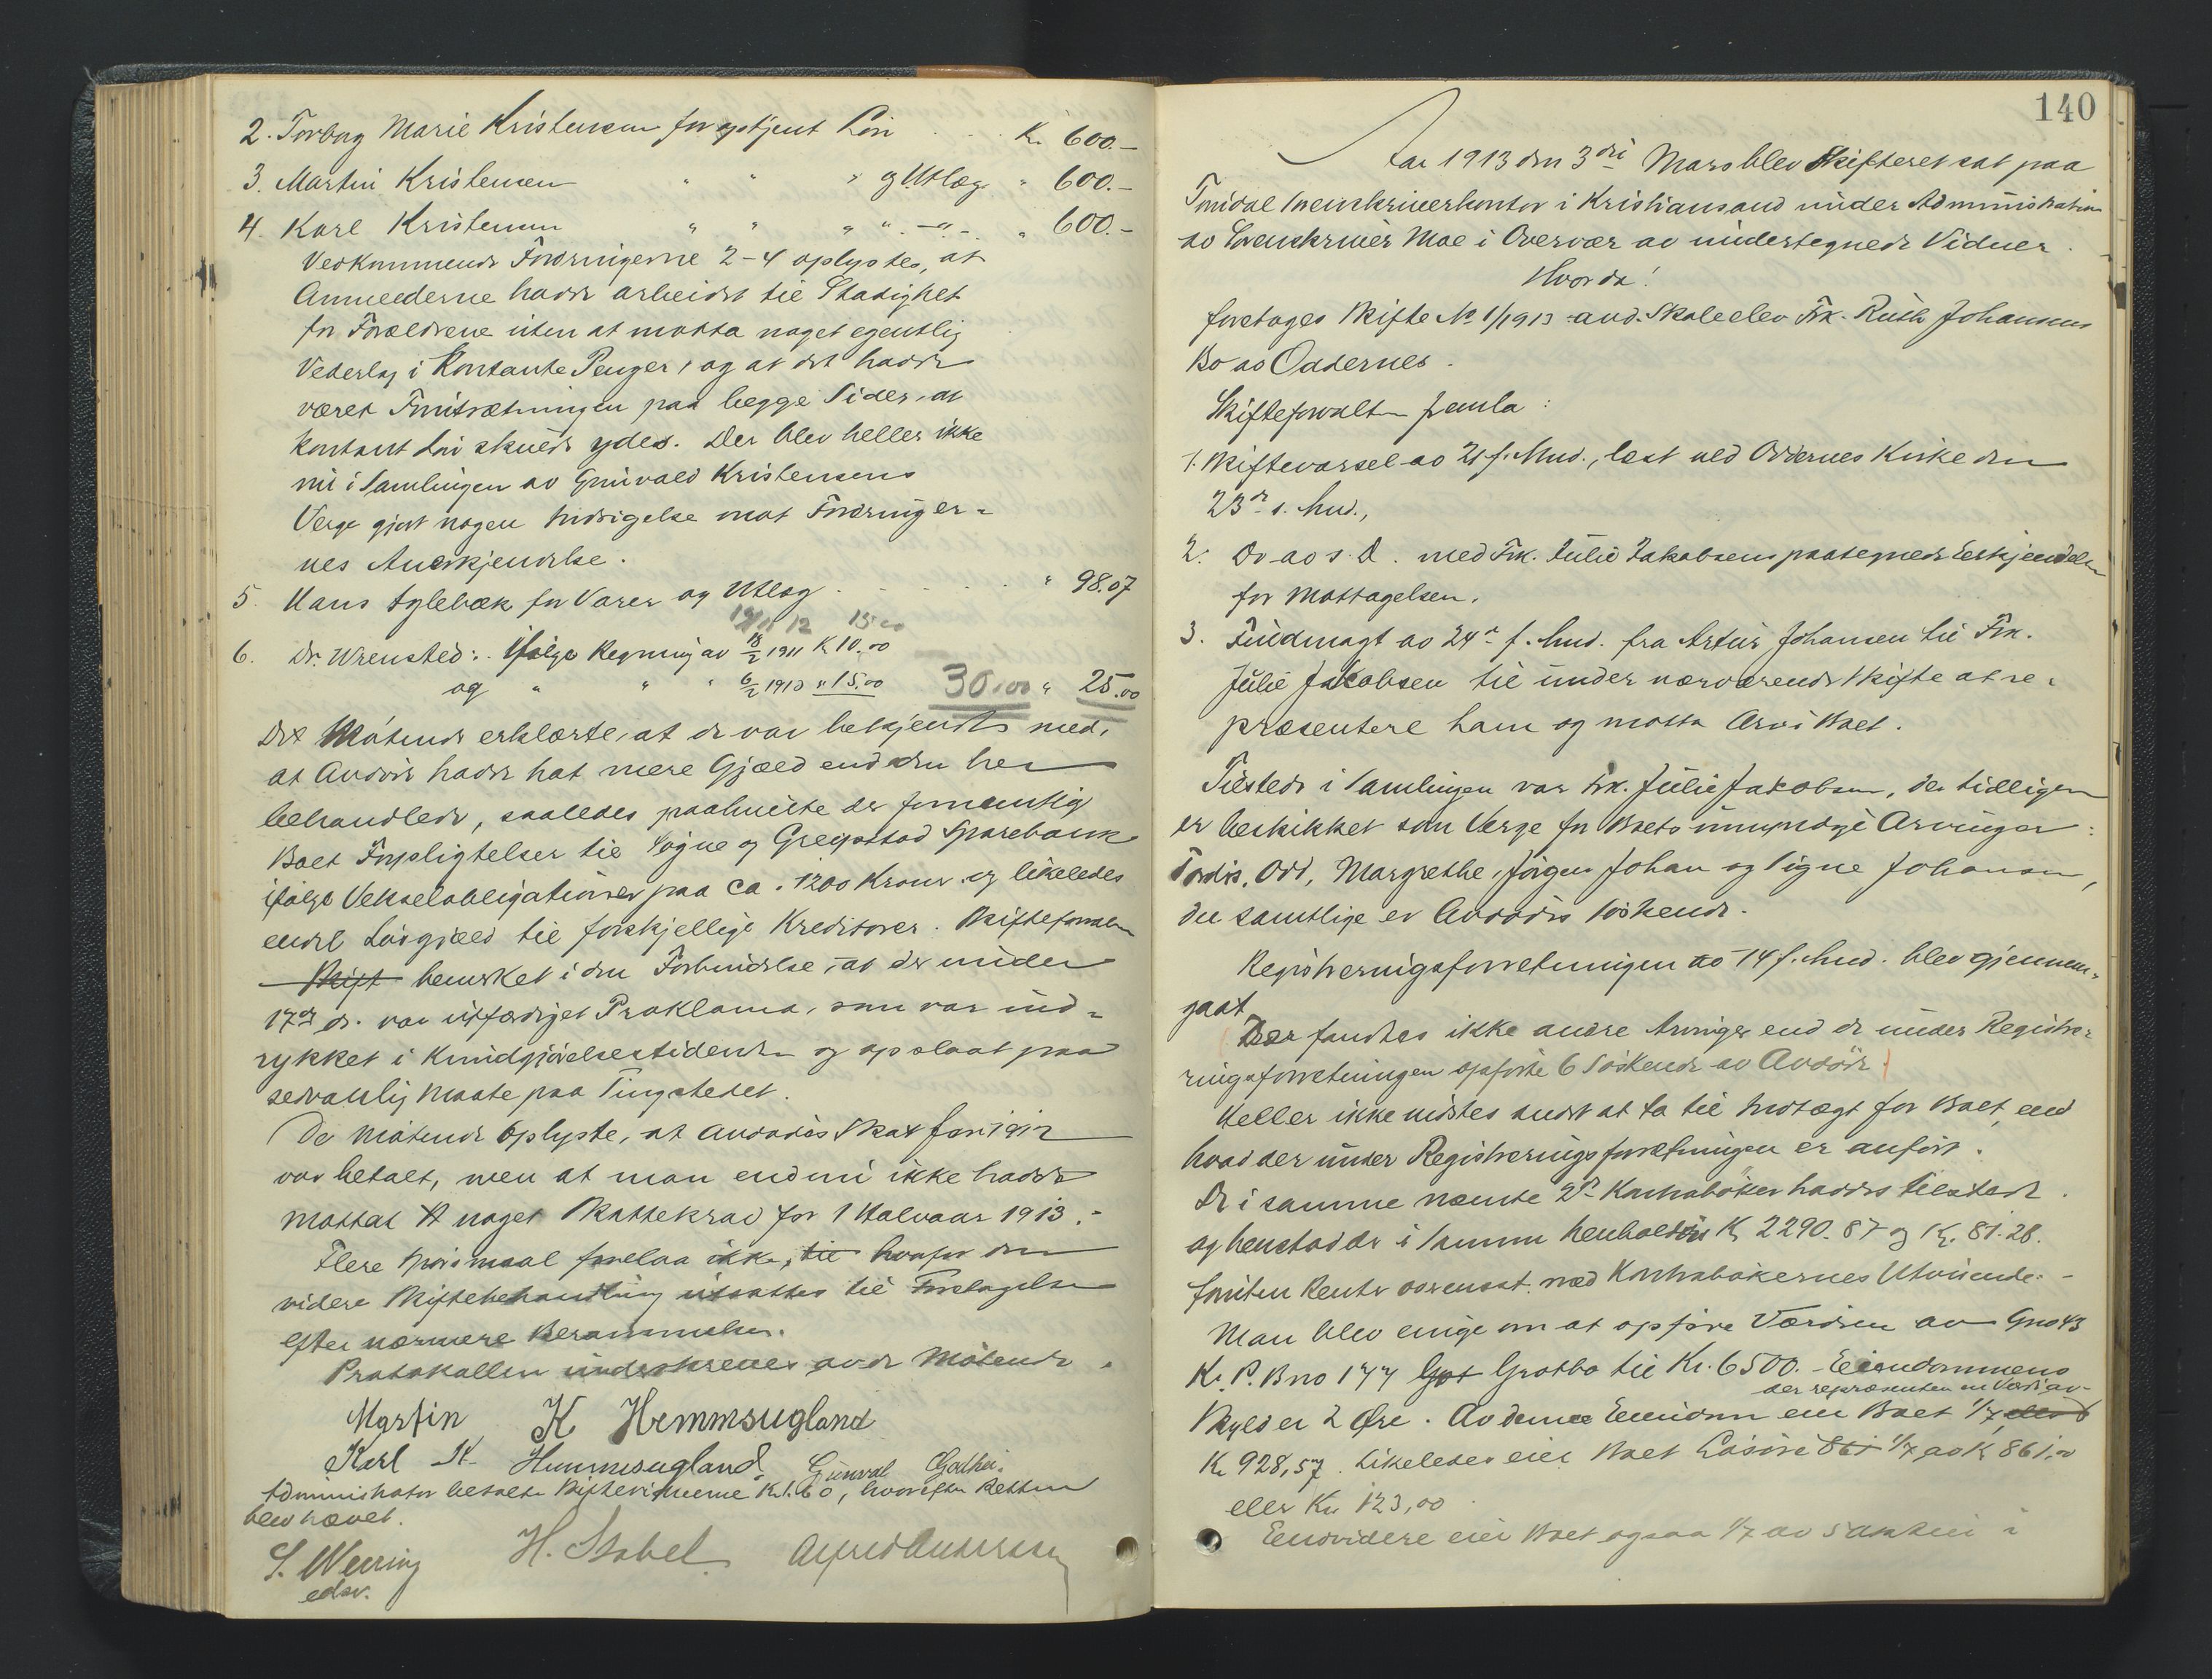 2. Torborg Marie Kristensen for optjent Løn . . . Kr. 600.-
3. Martin Kristensen " " " og Utlæg " 600.-
4. Karl Kristensen " " " " -"- " 600.-
Vedkommende Fordringerne 2-4 oplystes, at
Anmelderne hadde arbeidet til Stadighet
for Forældrene uten at motta noget egentlig
Vederlag i Kontante Penger, og at det hadde
været Forutsætningen paa begge Sider, at
kontant Løn skulde ydes. Der blev heller ikke
nu i Samlingen av Gunvald Kristensens
Verge gjort nogen Indsigelse mot Fordringer-
nes Anerkjendelse.
5. Hans Fglebæk for Varer og Utlæg . . . . " 98.07
12 15.00
6. Dr. Wrensted: Ifølge Regning av 18/2 1911 K 10.00
og " " " 6/2 1913 " 15.00 30.00 " 25.00
De Møtende erklærte, at de var bekjendt med,
at Avdøde hadde hat mere Gjæld end den her
behandlede, saaledes paahvilte der fornemlig
Boet Forpligtelser til Søgne og Greipstad Sparebank
ifølge Vekselobligationer paa ca. 1200 Kroner og likeledes
endel Løsgjæld til forskjellige Kreditorer. Skifteforvalteren
Skift bemerket i den Forbindelse, at der under
17de ds. var utfærdiget Proklama, som var ind-
rykket i Kundgjørelsestidende og opslaat paa
sedvanlig Maate paa Tingstedet.
De Møtende oplyste, at avdødes Skat for 1912
var betalt, men at man endnu ikke hadde
mottat noget Skattekrav for 1 Halvaar 1913.-
Flere Spørsmaal forelaa ikke, til hvorfor den
videre Skiftebehandling utsattes til Foretagelse
efter nærmere Berammelse.
Protokollen underskreves av de Møtende.
Martin K Hemmsugland
Karl K. Hemmsugland. Gunval
Administrator betalte Skiftevidnerne Kr. 1.60, hvorefter Retten
blev hævet.
S. Werring H. Stabel Alfred Andersen
edsv.
140
Aar 1913 den 3die Mars blev Skifteret sat paa
Torridal Sorenskriverkontor i Kristiansand under Administration
av Sorenskriver Moe i Overvær av undertegnede Vidner.
Hvorda!
foretoges Skifte No 1/1913 - avd. Skoleelev Frk. Ruth Johansens
Bo av Oddernes.
Skifteforvalteren fremla:
1. Skiftevarsel av 21 f. Mnd., læst ved Oddernes Kirke den
23de s. Mnd.,
2. Do av s. D. med Frk. Julie Jakobsens paategnede Erkjendelse
for Mottagelsen.
3. Fuldmagt av 24de f. Mnd. fra Artur Johansen til Frk.
Julie Jakobsen til under nærværende Skifte at re-
præsentere ham og motta Arv i Boet.
Tilstede i Samlingen var Frk. Julie Jakobsen, der tidligere
er beskikket som Verge for Boets umyndige Arvinger:
Tordis, Odd, Margrethe, Jørgen Johan og Signe Johansen,
der samtlige er Avdødes Søskende.
Registreringsforretningen av 14 f. Mnd. blev gjennem-
gaat.
Der fandtes ikke andre Arvinger end de under Registre-
ringsforretningen opførte 6 Søskende av Avdøde.
Heller ikke vidstes andet at ta til Indtægt for Boet end
hvad der under Registreringsforretningen er anført.
De i samme nævnte 2de Kontrabøker haddes tilstede
og henstod der i samme henholdsvis Kr 2290.87 og Kr. 81.28.
foruten Rente overensst. med Kontrabøkernes Utvisende.-
Man blev enige om at opføre Værdien av Gno 43
Kr. P. Bno 177 Grotbo til Kr. 6500. - Eiendommens
der repræsenterer en Værdi av-
Skyld er 2 Øre. Av denne Eiendom eier Boet 1/7 eller
Kr 928,57. Likeledes eier Boet Løsøre 861 1/7 av Kr 861,00
eller Kr 123,00
Endvidere eier Boet ogsaa 1/7 av 5 Aktier i